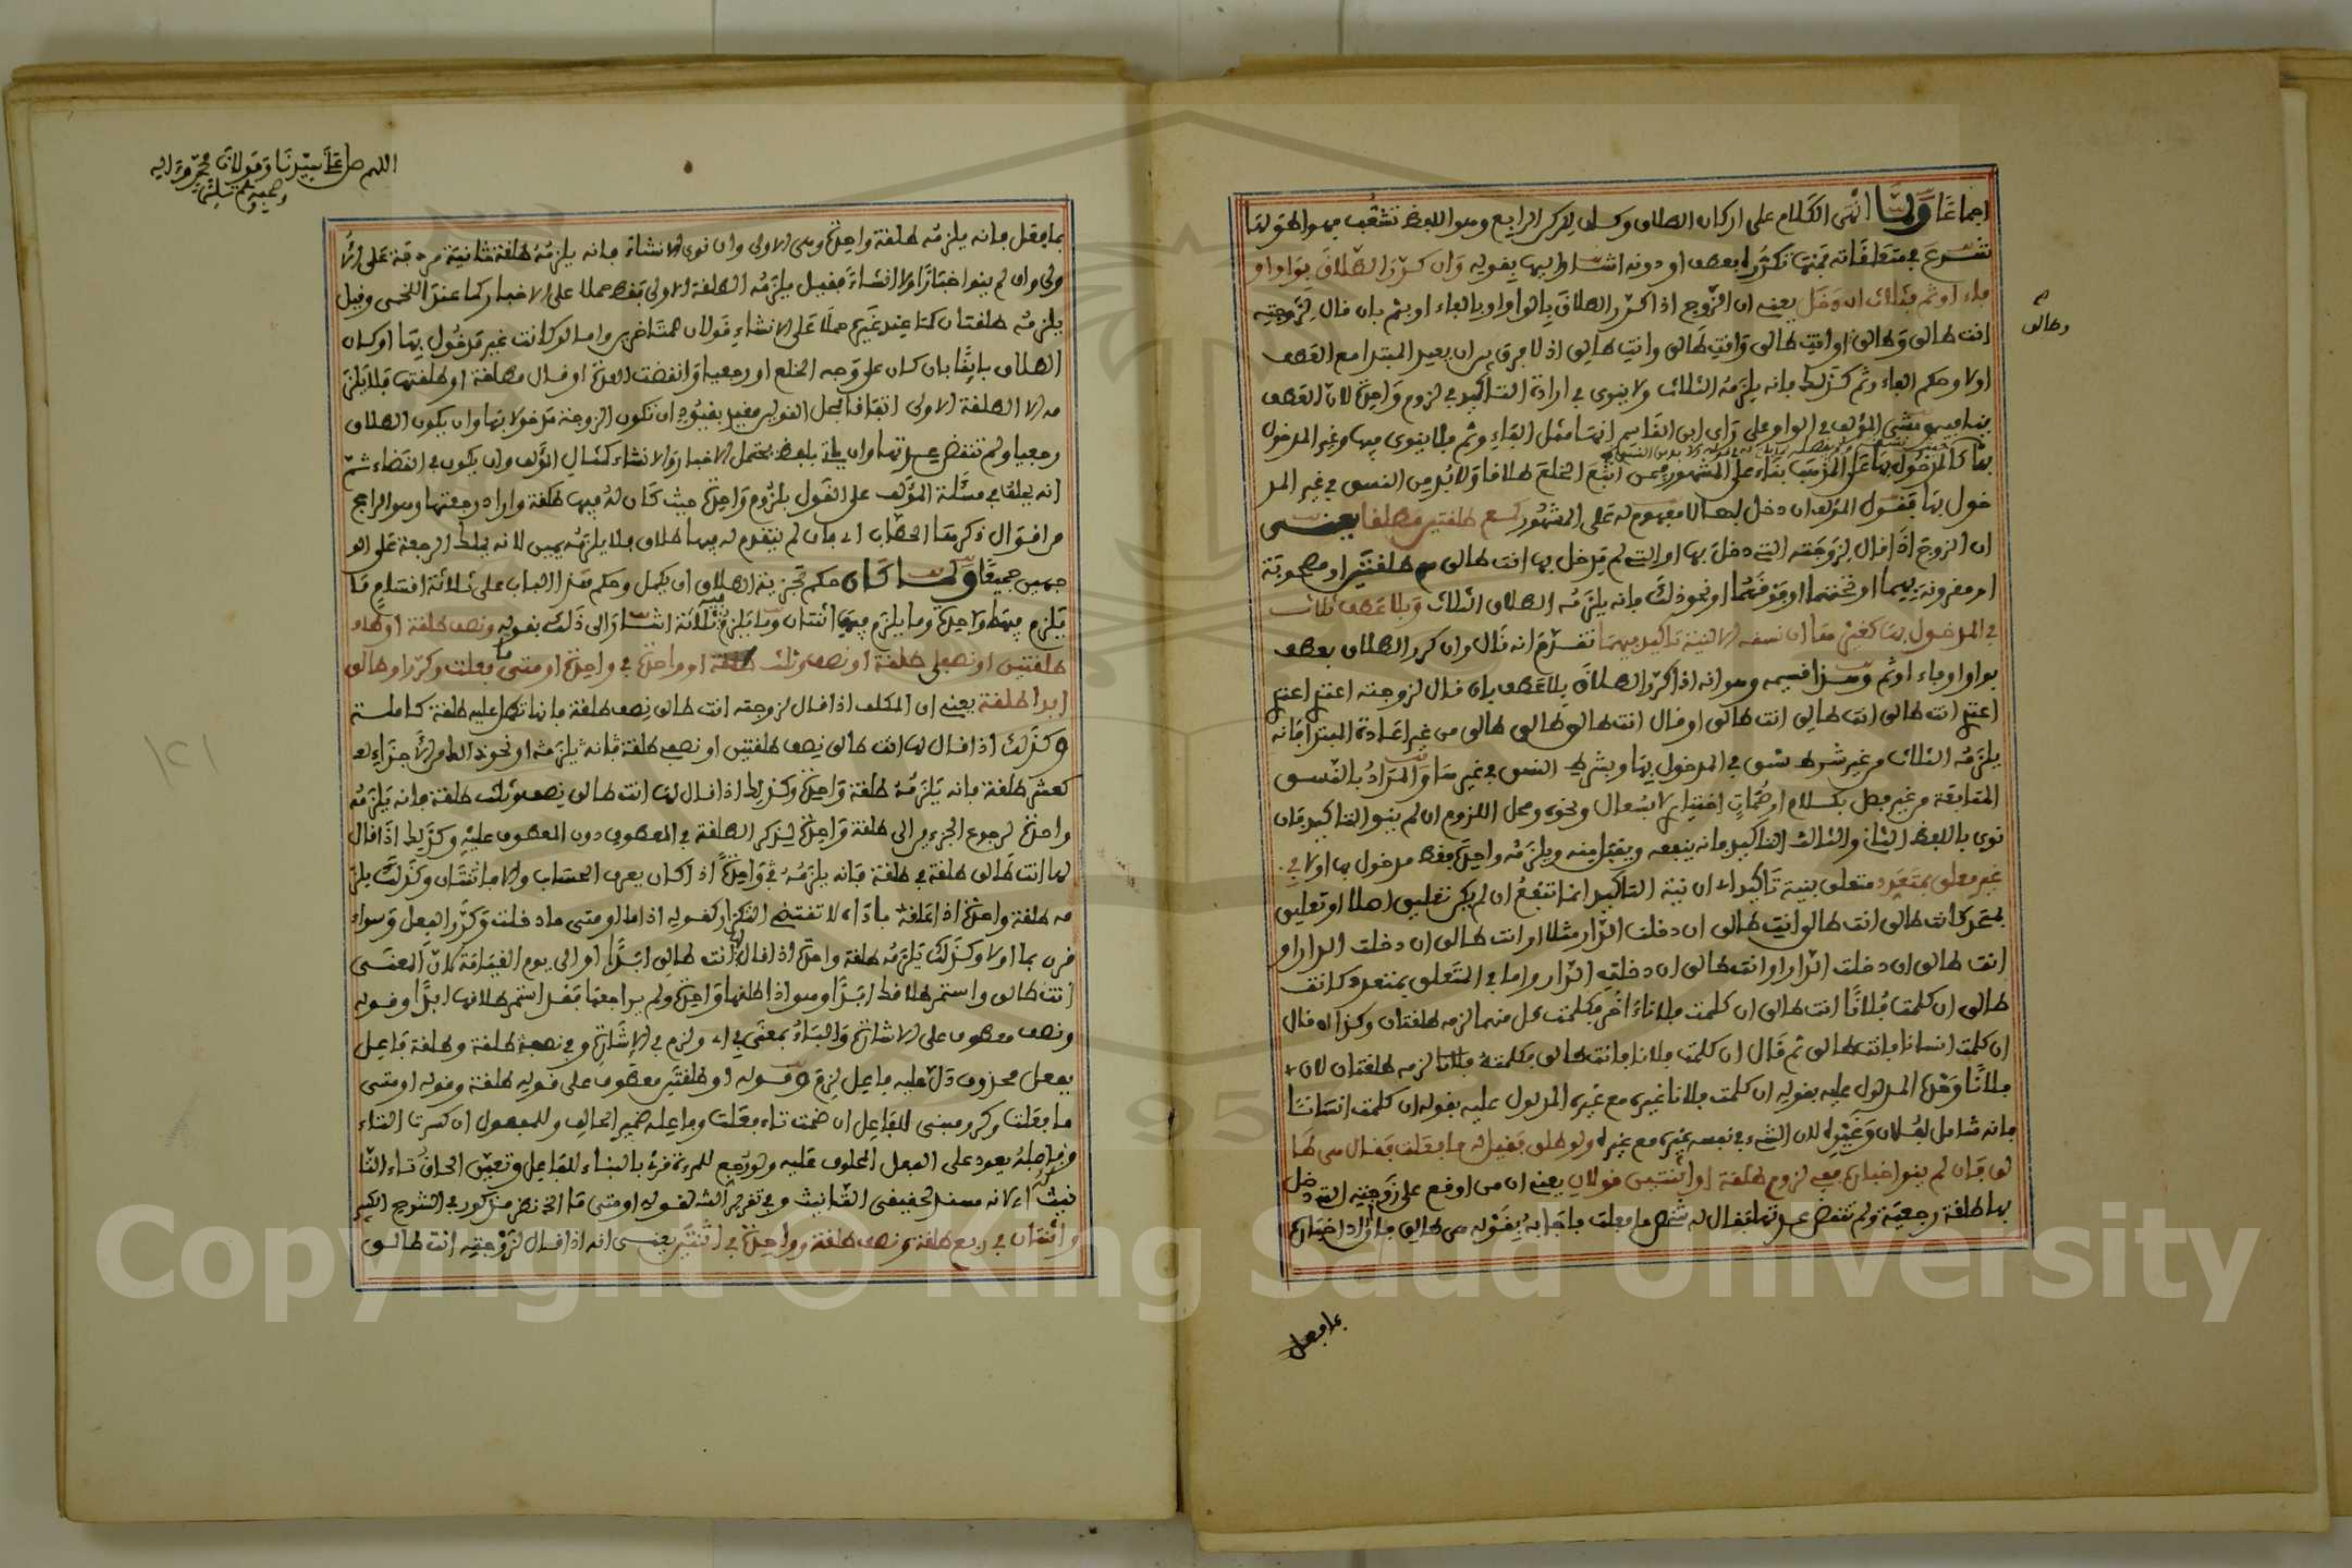 اجماعا ولما انهى الكلام على اركان الطلاق وكان الركن الرابع وهو اللفظ تشعب فيه الحق لما
تفرع في متعلقاته فمنها تكرره بعطف او دونه اشار اليها بقوله وان كرر الطلاق بواو او
فاء او ثم فثلاث ان دخل يعني ان الزوج اذا كرر الطلاق بالواو او بالفاء او بثم بان قال لزوجته
انت طالق وطالق او انت طالق وانت طالق وانت طالق اذ لا فرق بين ان يعيد المبتدا مع العطف
وطالق
اولا وحكم الفاء وثم كذلك فانه يلزمه الثلاث ولا ينوى في ارادة التاكيد في لزوم واحدة لان العطف
ينافيه ومشى المؤلف في الواو على راي ابن القاسم انها مثل الفاء وثم فلا ينوى فيها وغير المدخول
بها كالمدخول بها على المذهب بناء على المشهور فيمن اتبع الخلع طلاقا ولابد من النسق في غير المد
خول بها فقول المؤلف ان دخل بها لا مفهوم له على المشهور كمع طلقتين مطلقا يعني
ان الزوج اذا قال لزوجته التي دخل بها او التي لم يدخل بها انت طالق مع طلقتين او مصحوبة
او مقرونة بهما او تحتهما او فوقهما او نحو ذلك فانه يلزمه الطلاق الثلاث وبلا عطف ثلاث
في المدخول بها كغيرها ان نسقه الا لنية تاكيد فيهما تقدم انه قال وان كرر الطلاق بعطف
بواو او فاء او ثم وهذا قسيمه وهو انه اذا كرر الطلاق بلا عطف بان قال لزوجته اعتدي اعتدي
اعتدي انت طالق انت طالق انت طالق او قال انت طالق طالق طالق من غير اعادة المبتدا فانه
يلزمه الثلاث من غير شرط نسق في المدخول بها وبشرط النسق في غيرها والمراد بالنسق
المتابعة من غير فصل بكلام او صمات اختيارا لا بسعال ونحوه ومحل اللزوم ان لم ينو التاكيد فان
نوى باللفظ الثاني والثالث التاكيد فانه ينفعه ويقبل منه ويلزمه واحدة فقط مدخول بها اولا في
غير معلق بمتعدد متعلق بنية تاكيد اي ان نية التاكيد انما تنفع ان لم يكن تعليق اصلا او تعليق
بمتحد كانت طالق انت طالق انت طالق ان دخلت الدار مثلا او انت طالق ان دخلت الدار او
انت طالق ان دخلت الدار او انت طالق ان دخلت الدار واما في المتعلق بمتعدد كانت
طالق ان كلمت فلانا انت طالق ان كلمت فلانا اخر فكلمت كل منهما لزمه طلقتان وكذا لو قال
ان كلمت انسانا فانت طالق ثم قال ان كلمت فلانا فانت طالق فكلمته فلانا لزمه طلقتان لان
فلانا وحده المدلول عليه بقوله ان كلمت فلانا غيره مع غيره المدلول عليه بقوله ان كلمت انسانا
فانه شامل لفلان وغيره لان الشيء في نفسه غيره مع غيره ولو طلق فقيل له ما فعلت فقال هي طا
لق فان لم ينو اخباره ففي لزوم طلقة او اثنتين قولان يعني ان من اوقع على زوجته التي دخل
بها طلقة رجعية ولم تنقض عدتها فقال له شخص ما فعلت فاجابه بقوله هي طالق فان اراد اخباره
بما فعل
اللهم صل على سيدنا ومولانا محمد وءاله
وصحبه وسلم تسليما
بما فعل فانه يلزمه طلقة واحدة وهي الاولى وان نوى الانشاء فانه يلزمه طلقة ثانية مردفة على الا
ولى وان لم ينو اخبارا ولا انشاء فقيل يلزمه الطلقة الاولى فقط حملا على الاخبار كما عند اللخمي وقيل
يلزمه طلقتان كما عند غيره حملا على الانشاء قولان للمتاخرين واما لو كانت غير مدخول بها او كان
الطلاق بائنا بان كان على وجه الخلع او رجعيا وانقضت العدة او قال مطلقة او طلقتها فلا يلز
مه الا الطلقة الاولى اتفاقا فمحل القولين مقيد بقيود ان تكون الزوجة مدخولا بها وان يكون الطلاق
رجعيا ولم تنقض عدتها وان ياتي بلفظ يحتمل الاخبار والانشاء كمثال المؤلف وان يكون في القضاء ثم
انه يحلف في مسئلة المؤلف على القول بلزوم واحدة حيث كان له فيها طلقة واراد رجعتها وهو الراجح
من اقوال ذكرها الحطاب اي فان لم يتقدم له فيها طلاق فلا يلزمه يمين لانه يملك الرجعة على الو
جهين جميعا ولما كان حكم تجزية الطلاق ان يكمل وحكم هذا الباب على ثلاثة اقسام ما
يلزم فيها واحدة وما يلزم فيها اثنتان وما يلزم فيه ثلاثة اشار الى ذلك بقوله ونصف طلقة او طلقة او
طلقتين او نصفي طلقة او نصف وثلث طلقة او واحدة في واحدة او متى ما فعلت وكرر او طالق
ابدا طلقة يعني ان المكلف اذا قال لزوجته انت طالق نصف طلقة فانها تكمل عليه طلقة كاملة
وكذلك اذا قال لها انت طالق نصف طلقتين او نصفي طلقة فانه يلزمه او نحو ذلك من الاجزاء
كعشر طلقة فانه يلزمه طلقة واحدة وكذلك اذا قال لها انت طالق نصف وثلث طلقة فانه يلزمه
واحدة لرجوع الجزءين الى طلقة واحدة لذكر الطلقة في المعطوف دون المعطوف عليه وكذلك اذا قال
لها انت طالق طلقة في طلقة فانه يلزمه في واحدة اذا كان يعرف الحساب والا فاثنتان وكذلك يلز
مه طلقة واحدة اذا علقه باداة لا تقتضي التكرار كقوله اذا ما او متى ما دخلت وكرر الفعل وسواء
قرن بما اولا وكذلك يلزمه طلقة واحدة اذا قال لها انت طالق ابدا او الى يوم القيامة لان المعنى
انت طالق واستمر طلاقك ابدا وهو اذا طلقها واحدة ولم يراجعها فقد استمر طلاقها ابدا وقوله
ونصف معطوف على الاشارة والباء بمعنى في اي ولزم في الاشارة وفي نصف طلقة وطلقة فاعل
بفعل محذوف دل عليه فاعل لزم وقوله او طلقتين معطوف على قوله طلقة وقوله او متى
ما فعلت وكرر مبني للفاعل ان ضمت تاء فعلت وفاعله ضمير الحالف وللمفعول ان كسرت التاء
وفاعله يعود على الفعل المحلوف عليه ولو رجع للمرءة قرئ بالبناء للفاعل وتعين الحاق تاء التا
نيث اي لانه مسند لحقيقي التانيث وفي تقرير الشه لقوله او متى ما الخ نظر مذكور في الشرح الكبير
واثنتان في ربع طلقة ونصف طلقة وواحدة في اثنتين يعني انه اذا قال لزوجته انت طالق
Copyright © King Saud University